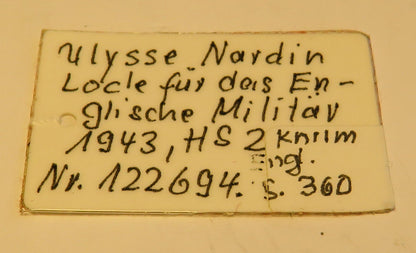 Ulysse Nardin
Locle für das En-
glische Militär
1943, HS 2 Knrim
engl.
Nr. 122694. S. 360